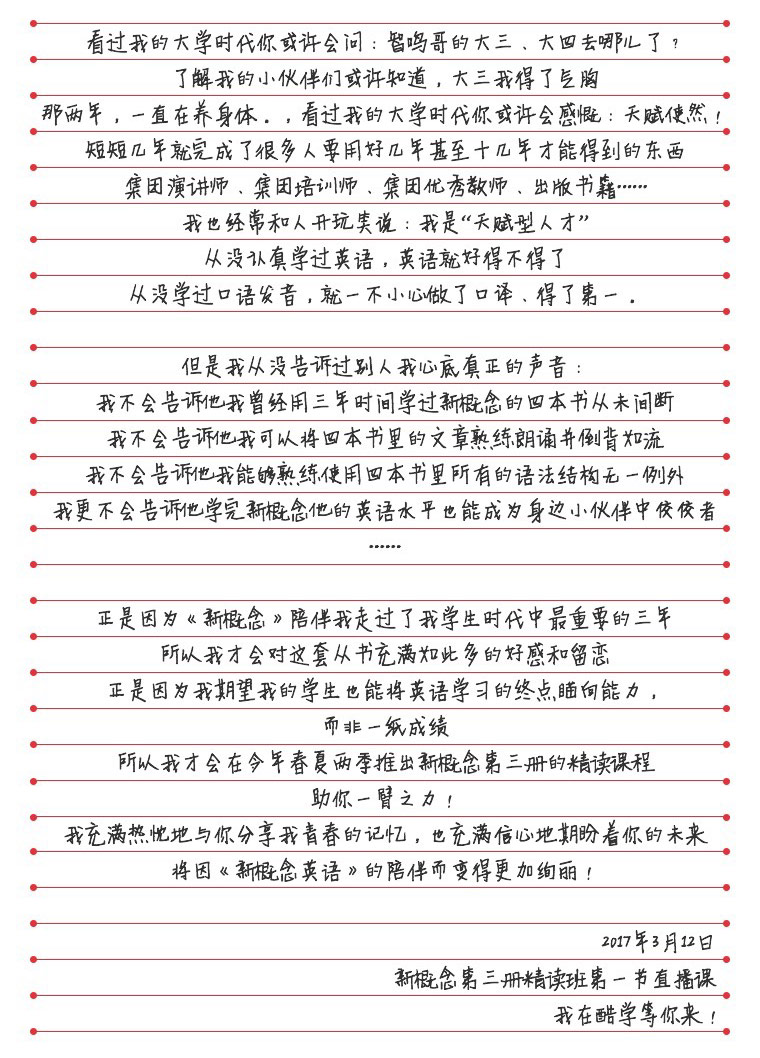 看过我的大学时代你或许会问：智鸣哥的大三、大四去哪儿了？
了解我的小伙伴们或许知道，大三我得了气胸
那两年，一直在养身体。，看过我的大学时代你或许会感慨：天赋使然！
短短几年就完成了很多人要用好几年甚至十几年才能得到的东西
集团演讲师、集团培训师、集团优秀教师、出版书籍……
我也经常和人开玩笑说：我是“天赋型人才”
从没认真学过英语，英语就好得不得了
从没学过口语发音，就一不小心做了口译、得了第一。
但是我从没告诉过别人我心底真正的声音：
我不会告诉他我曾经用三年时间学过新概念的四本书从未间断
我不会告诉他我可以将四本书里的文章熟练朗诵并倒背如流
我不会告诉他我能够熟练使用四本书里所有的语法结构无一例外
我更不会告诉他学完新概念他的英语水平也能成为身边小伙伴中佼佼者
……
正是因为《新概念》陪伴我走过了我学生时代中最重要的三年
所以我才会对这套丛书充满如此多的好感和留恋
正是因为我期望我的学生也能将英语学习的终点瞄向能力，
而非一纸成绩
所以我才会在今年春夏两季推出新概念第三册的精读课程
助你一臂之力！
我充满热忱地与你分享我青春的记忆，也充满信心地期盼着你的未来
将因《新概念英语》的陪伴而变得更加绚丽！
2017年3月12日
新概念第三册精读班第一节直播课
我在酷学等你来！